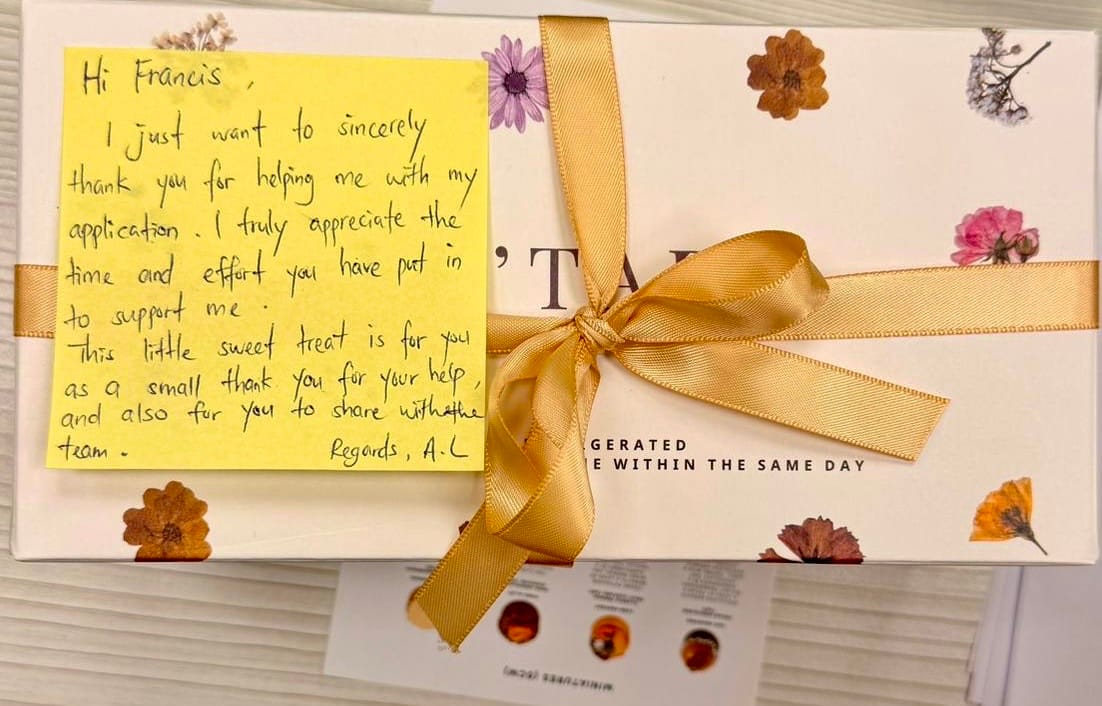 Hi Francis,
I just want to sincerely
thank you for helping me with my
application. I truly appreciate the
time and effort you have put in
to support me.
This little sweet treat is for you
as a small thank you for your help,
and also for you to share with the
team.
Regards, A.L
'TA
GERATED
E WITHIN THE SAME DAY
MINIATURES (9CM)